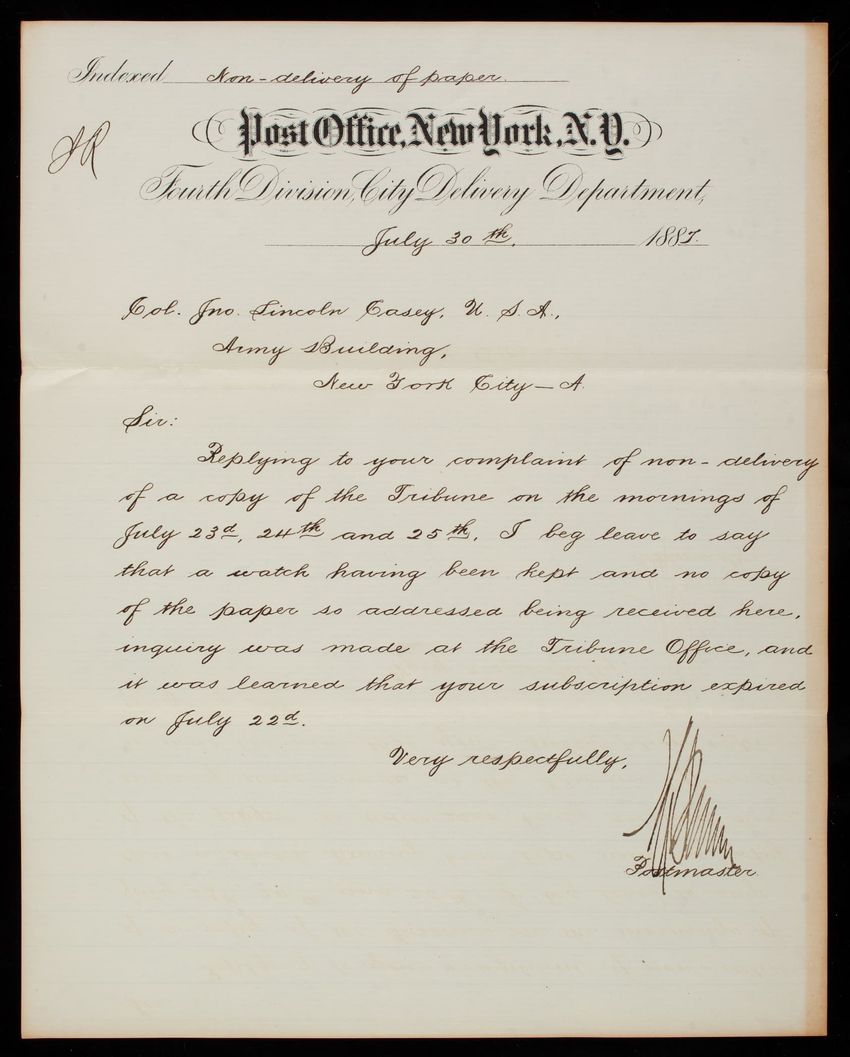 Indexed Non-delivery of paper.
Post Office, New York, N.Y.
Fourth Division, City Delivery Department,
July 30th. 1887.
Col. Jno. Lincoln Casey, U. S. A.,
Army Building,
New York City—A.
Sir:
Replying to your complaint of non-delivery
of a copy of the Tribune on the mornings of
July 23d, 24th and 25th, I beg leave to say
that a watch having been kept and no copy
of the paper so addressed being received here,
inquiry was made at the Tribune Office, and
it was learned that your subscription expired
on July 22d.
Very respectfully,
Postmaster